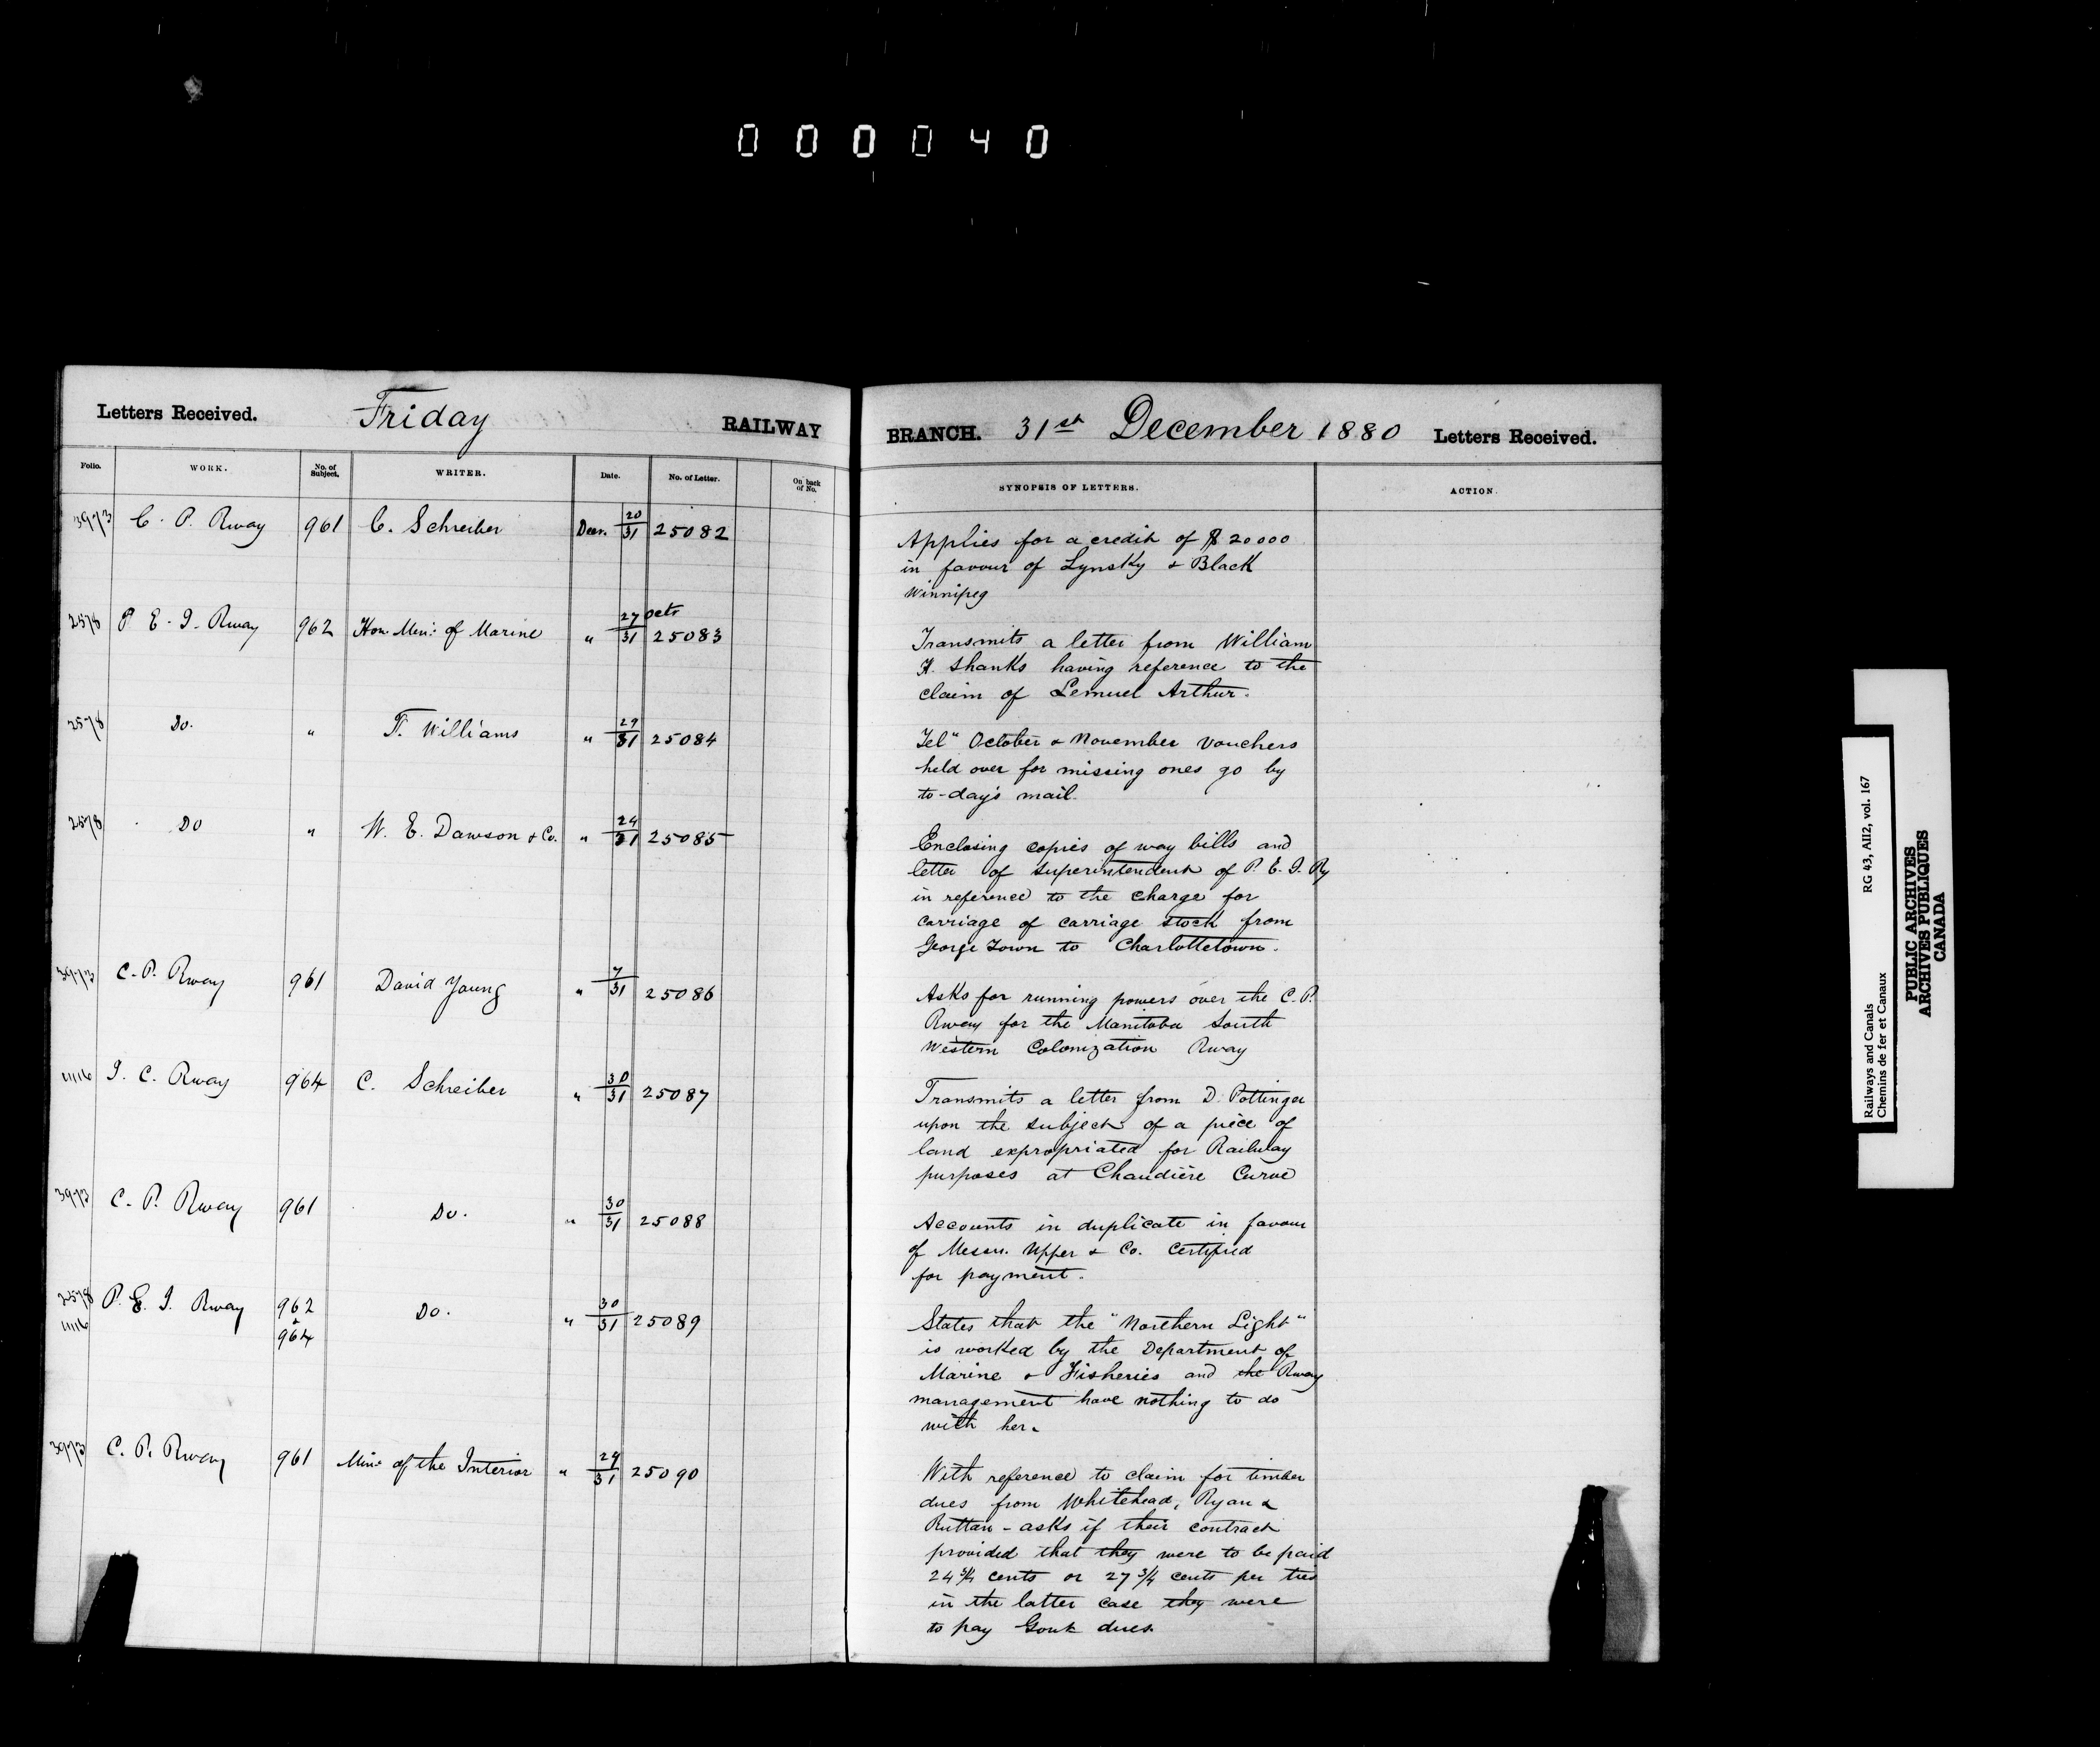 000040
Letters Received. Friday RAILWAY BRANCH. 31st December 1880 Letters Received.
Folio. WORK. No. of Subject. WRITER. Date. No. of Letter. On back of No. SYNOPSIS OF LETTERS. ACTION.
3973 C. P. Rway 961 C. Schreiber Decr. 20/31 25082
Applies for a credit of $20000
in favour of Lynsky & Black
Winnipeg
2578 P. E. I. Rway 962 Hon. Min: of Marine " 27/31 25083 pcts
Transmits a letter from William
H. Shanks having reference to the
claim of Lemuel Arthur.
2578 Do. " T. Williams " 29/31 25084
Tel" October & November vouchers
held over for missing ones go by
to-day's mail.
2578 Do " W. E. Dawson & Co. " 24/31 25085
Enclosing copies of way bills and
letter of Superintendent of P. E. I. Ry
in reference to the charge for
carriage of carriage stock from
George Town to Charlottetown.
3973 C. P. Rway 961 David Young " 7/31 25086
Asks for running powers over the C. P.
Rway for the Manitoba South
Western Colonization Rway
11116 I. C. Rway 964 C. Schreiber " 30/31 25087
Transmits a letter from D. Pottinger
upon the subject of a piece of
land expropriated for Railway
purposes at Chaudière Curve
3973 C. P. Rway 961 Do. " 30/31 25088
Accounts in duplicate in favour
of Messrs. Upper & Co. Certified
for payment.
2578 P. E. I. Rway 962 Do. " 30/31 25089
11116 & 964
States that the "Northern Light"
is worked by the Department of
Marine & Fisheries and the Rway
management have nothing to do
with her.
3973 C. P. Rway 961 Min: of the Interior " 29/31 25090
With reference to claim for timber
dues from Whitehead, Ryan &
Ruttan - asks if their contract
provided that they were to be paid
24 3/4 cents or 27 3/4 cents per ties
in the latter case they were
to pay Govt dues.
Railways and Canals RG 43, AII2, vol. 167
Chemins de fer et Canaux
PUBLIC ARCHIVES
ARCHIVES PUBLIQUES
CANADA